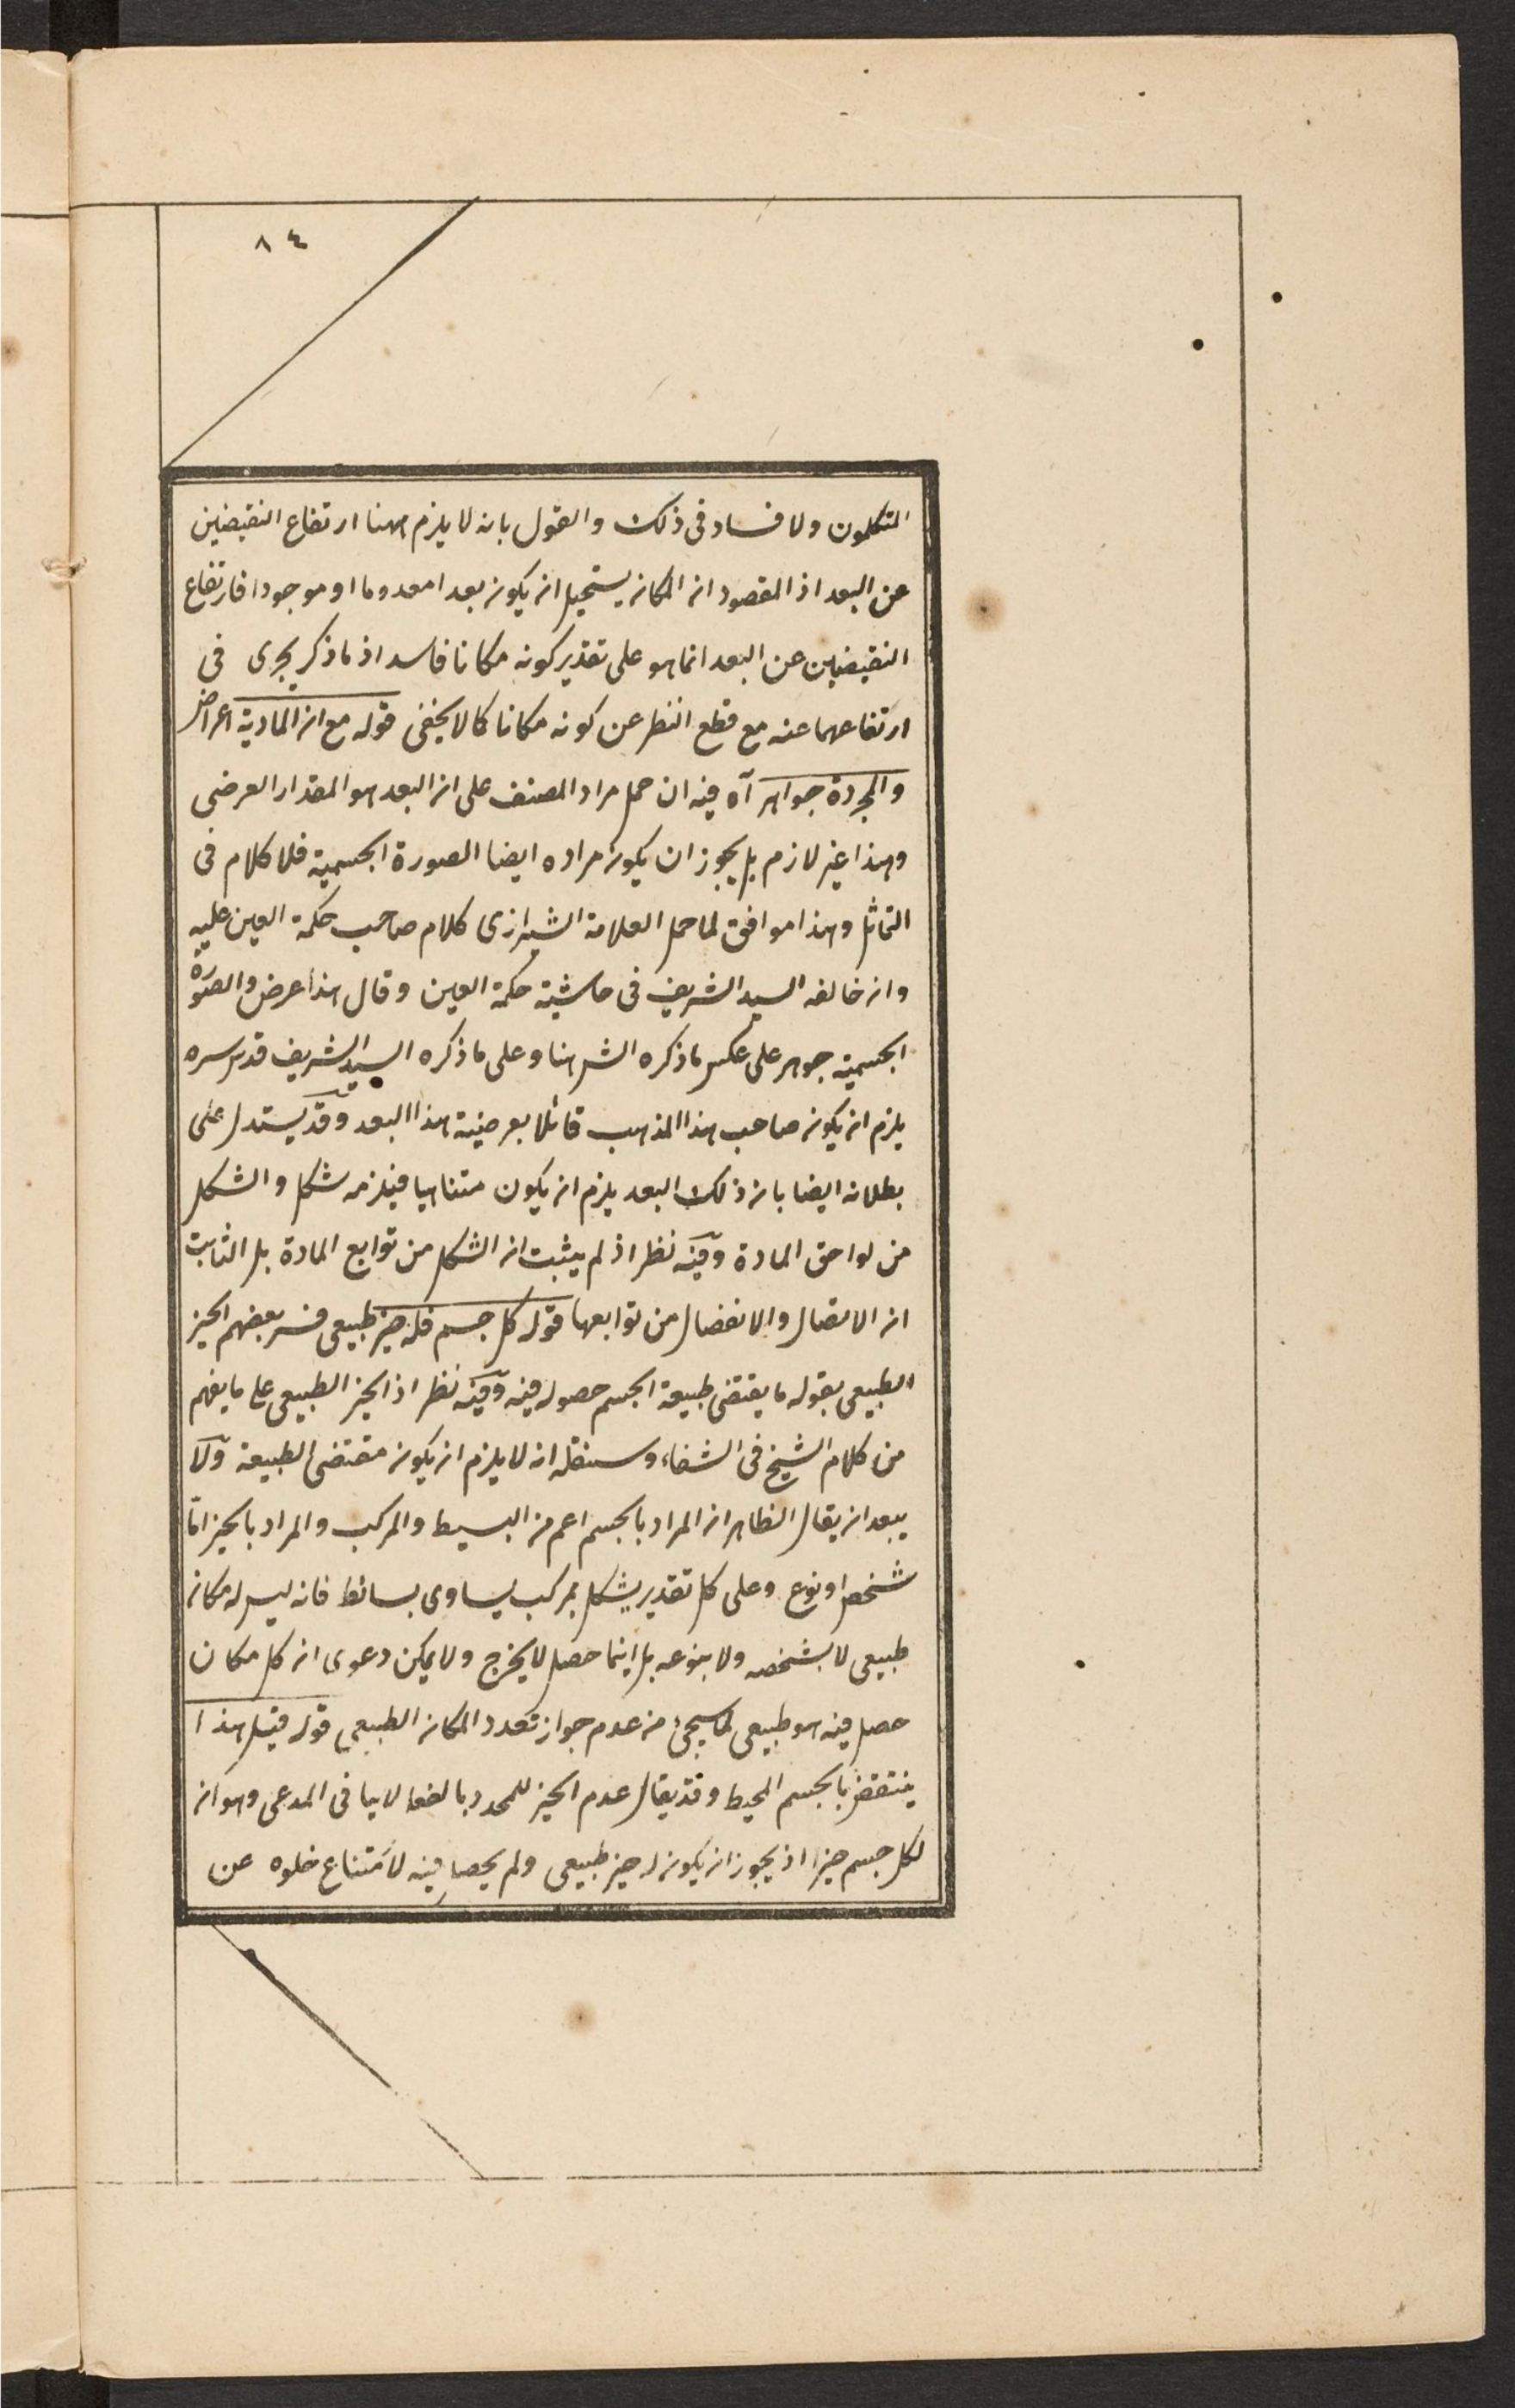 ٨٤
المتكلمون ولا فساد فى ذلك والقول بانه لا يلزم ههنا ارتفاع النقيضين
عن البعد اذ المقصود ان المكان يستحيل ان يكون بعدا معدوما او موجودا فارتفاع
النقيضين عن البعد انما هو على تقدير كونه مكانا فاسد اذ ما ذكر يجرى فى
ارتفاعهما عنه مع قطع النظر عن كونه مكانا كما لا يخفى قوله مع ان المادية اعراض
والمجردة جواهر آه فيه ان حمل مراد المصنف على ان البعد هو المقدار العرضى
وهذا غير لازم بل يجوز ان يكون مراده ايضا الصورة الجسمية فلا كلام فى
التماثل وهذا موافق لما حمل العلامة الشيرازى كلام صاحب حكمة العين عليه
وان خالفه السيد الشريف فى حاشية حكمة العين وقال هذا عرض والصورة
الجسمية جوهر على عكس ما ذكره الش هنا وعلى ما ذكره السيد الشريف قدس سره
يلزم ان يكون صاحب هذا المذهب قائلا بعرضية هذا البعد وقد يستدل على
بطلانه ايضا بان ذلك البعد يلزم ان يكون متناهيا فيلزمه شكل والشكل
من لواحق المادة وفيه نظر اذ لم يثبت ان الشكل من توابع المادة بل الثابت
ان الاتصال والانفصال من توابعها قوله كل جسم فله حيز طبيعى فسر بعضهم الحيز
الطبيعى بقوله ما يقتضى طبيعة الجسم حصوله فيه وفيه نظر اذ الحيز الطبيعى على ما يفهم
من كلام الشيخ فى الشفاء وسننقله انه لا يلزم ان يكون مقتضى الطبيعة ولا
يبعد ان يقال الظاهر ان المراد بالجسم اعم من البسيط والمركب والمراد بالحيز امّا
شخص او نوع وعلى كل تقدير يشكل بمركب يساوى بسائطه فانه ليس له مكان
طبيعى لا بشخصه ولا بنوعه بل اينما حصل لا يخرج ولا يمكن دعوى ان كل مكان
حصل فيه هو طبيعى لما سيجئ من عدم جواز تعدد المكان الطبيعى قوله قيل هذا
ينتقض بالجسم المحيط وقد يقال عدم الحيز للمحدد بالفعل لا ينافى المدعى وهو ان
لكل جسم حيزا اذ يجوز ان يكون له حيز طبيعى ولم يحصل فيه لامتناع خلوه عن